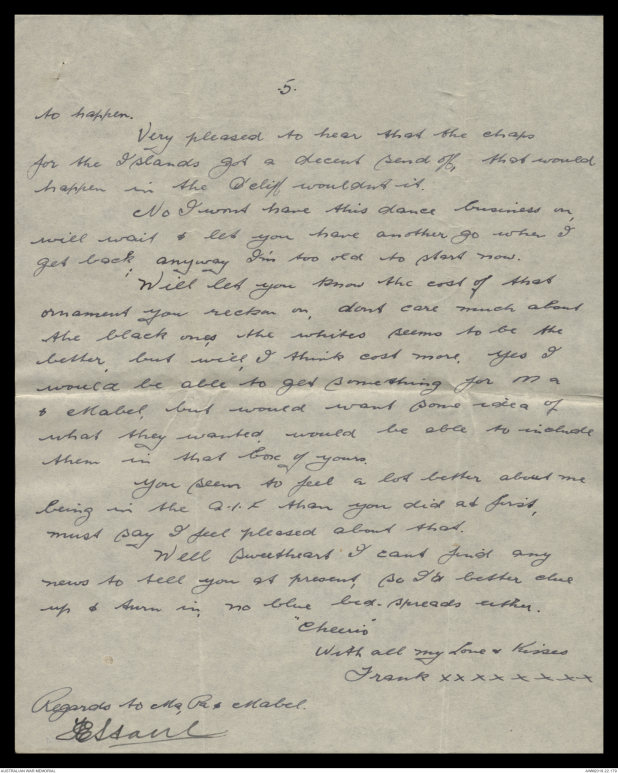 5.
to happen.
Very pleased to hear that the chaps
for the Islands got a decent send off, that would
happen in the Schiff wouldnt it.
No I wont have this dance business on,
will wait & let you have another go when I
get back, anyway I'm too old to start now.
Will let you know the cost of that
ornament you reckon on, dont care much about
the black ones, the whites seems to be the
better, but will, I think cost more. Yes I
would be able to get something for Ma
& Mabel, but would want some idea of
what they wanted, would be able to include
them in that box of yours.
You seem to feel a lot better about me
being in the A.I.F than you did at first,
must say I feel pleased about that.
Well Sweetheart I cant find any
news to tell you at present, so I'd better
up & turn in, no blue bed-spreads either.
"Cheerio"
With all my Love & Kisses
Frank xxxxxxxxx
Regards to Ma, Pa & Mabel.
AUSTRALIAN WAR MEMORIAL